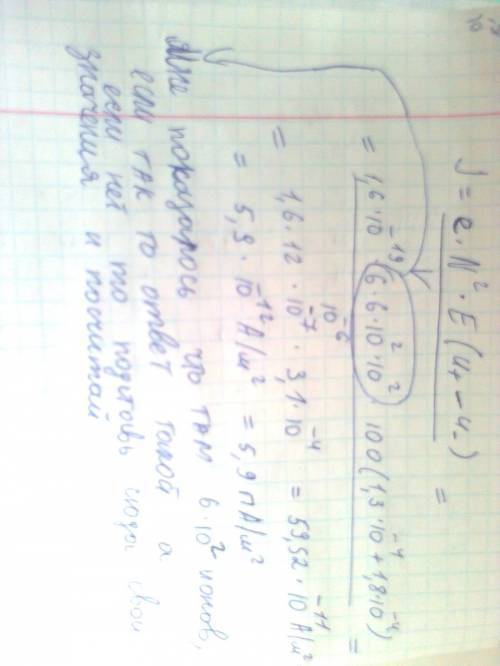 J = e · N² · E (u₊ - u₋) =
= 1,6 · 10⁻¹⁹ 6 · 6 · 10² · 10² 100 (1,3 · 10⁻⁴ + 1,8 · 10⁻⁴) =
10⁻⁶
= 1,6 · 12 · 10⁻⁷ · 3,1 · 10⁻⁴ = 59,52 · 10⁻¹¹ А/м²
= 5,9 · 10⁻¹² А/м² = 5,9 пА/м²
Мне показалось что там 6·10² ионов,
если так то ответ такой а
если нет то подставь сюда свои
значения и посчитай